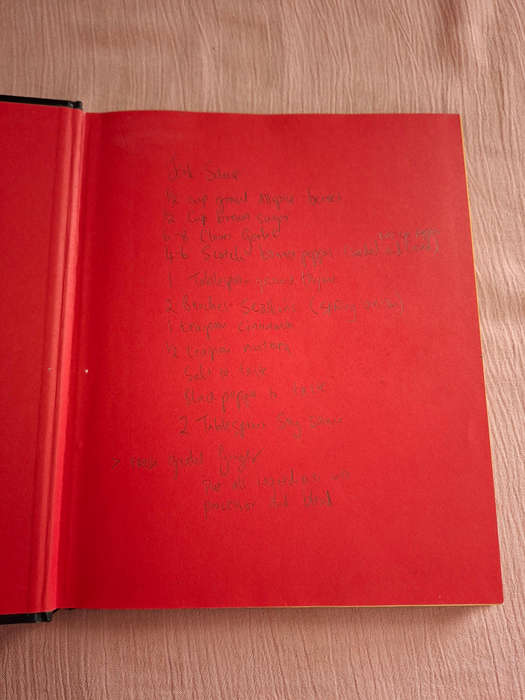 Jerk Sauce
1/2 cup ground allspice berries
1/2 cup brown sugar
6-8 cloves Garlic
4-6 Scotch Bonnet peppers
1 Tablespoon ground thyme
2 Bunches Scallions (spring onions)
1 teaspoon Cinnamon
1/2 teaspoon nutmeg
Salt to taste
Black pepper to
2 Tablespoons Soy Sauce
grated ginger
Put all ingredients in
processor till